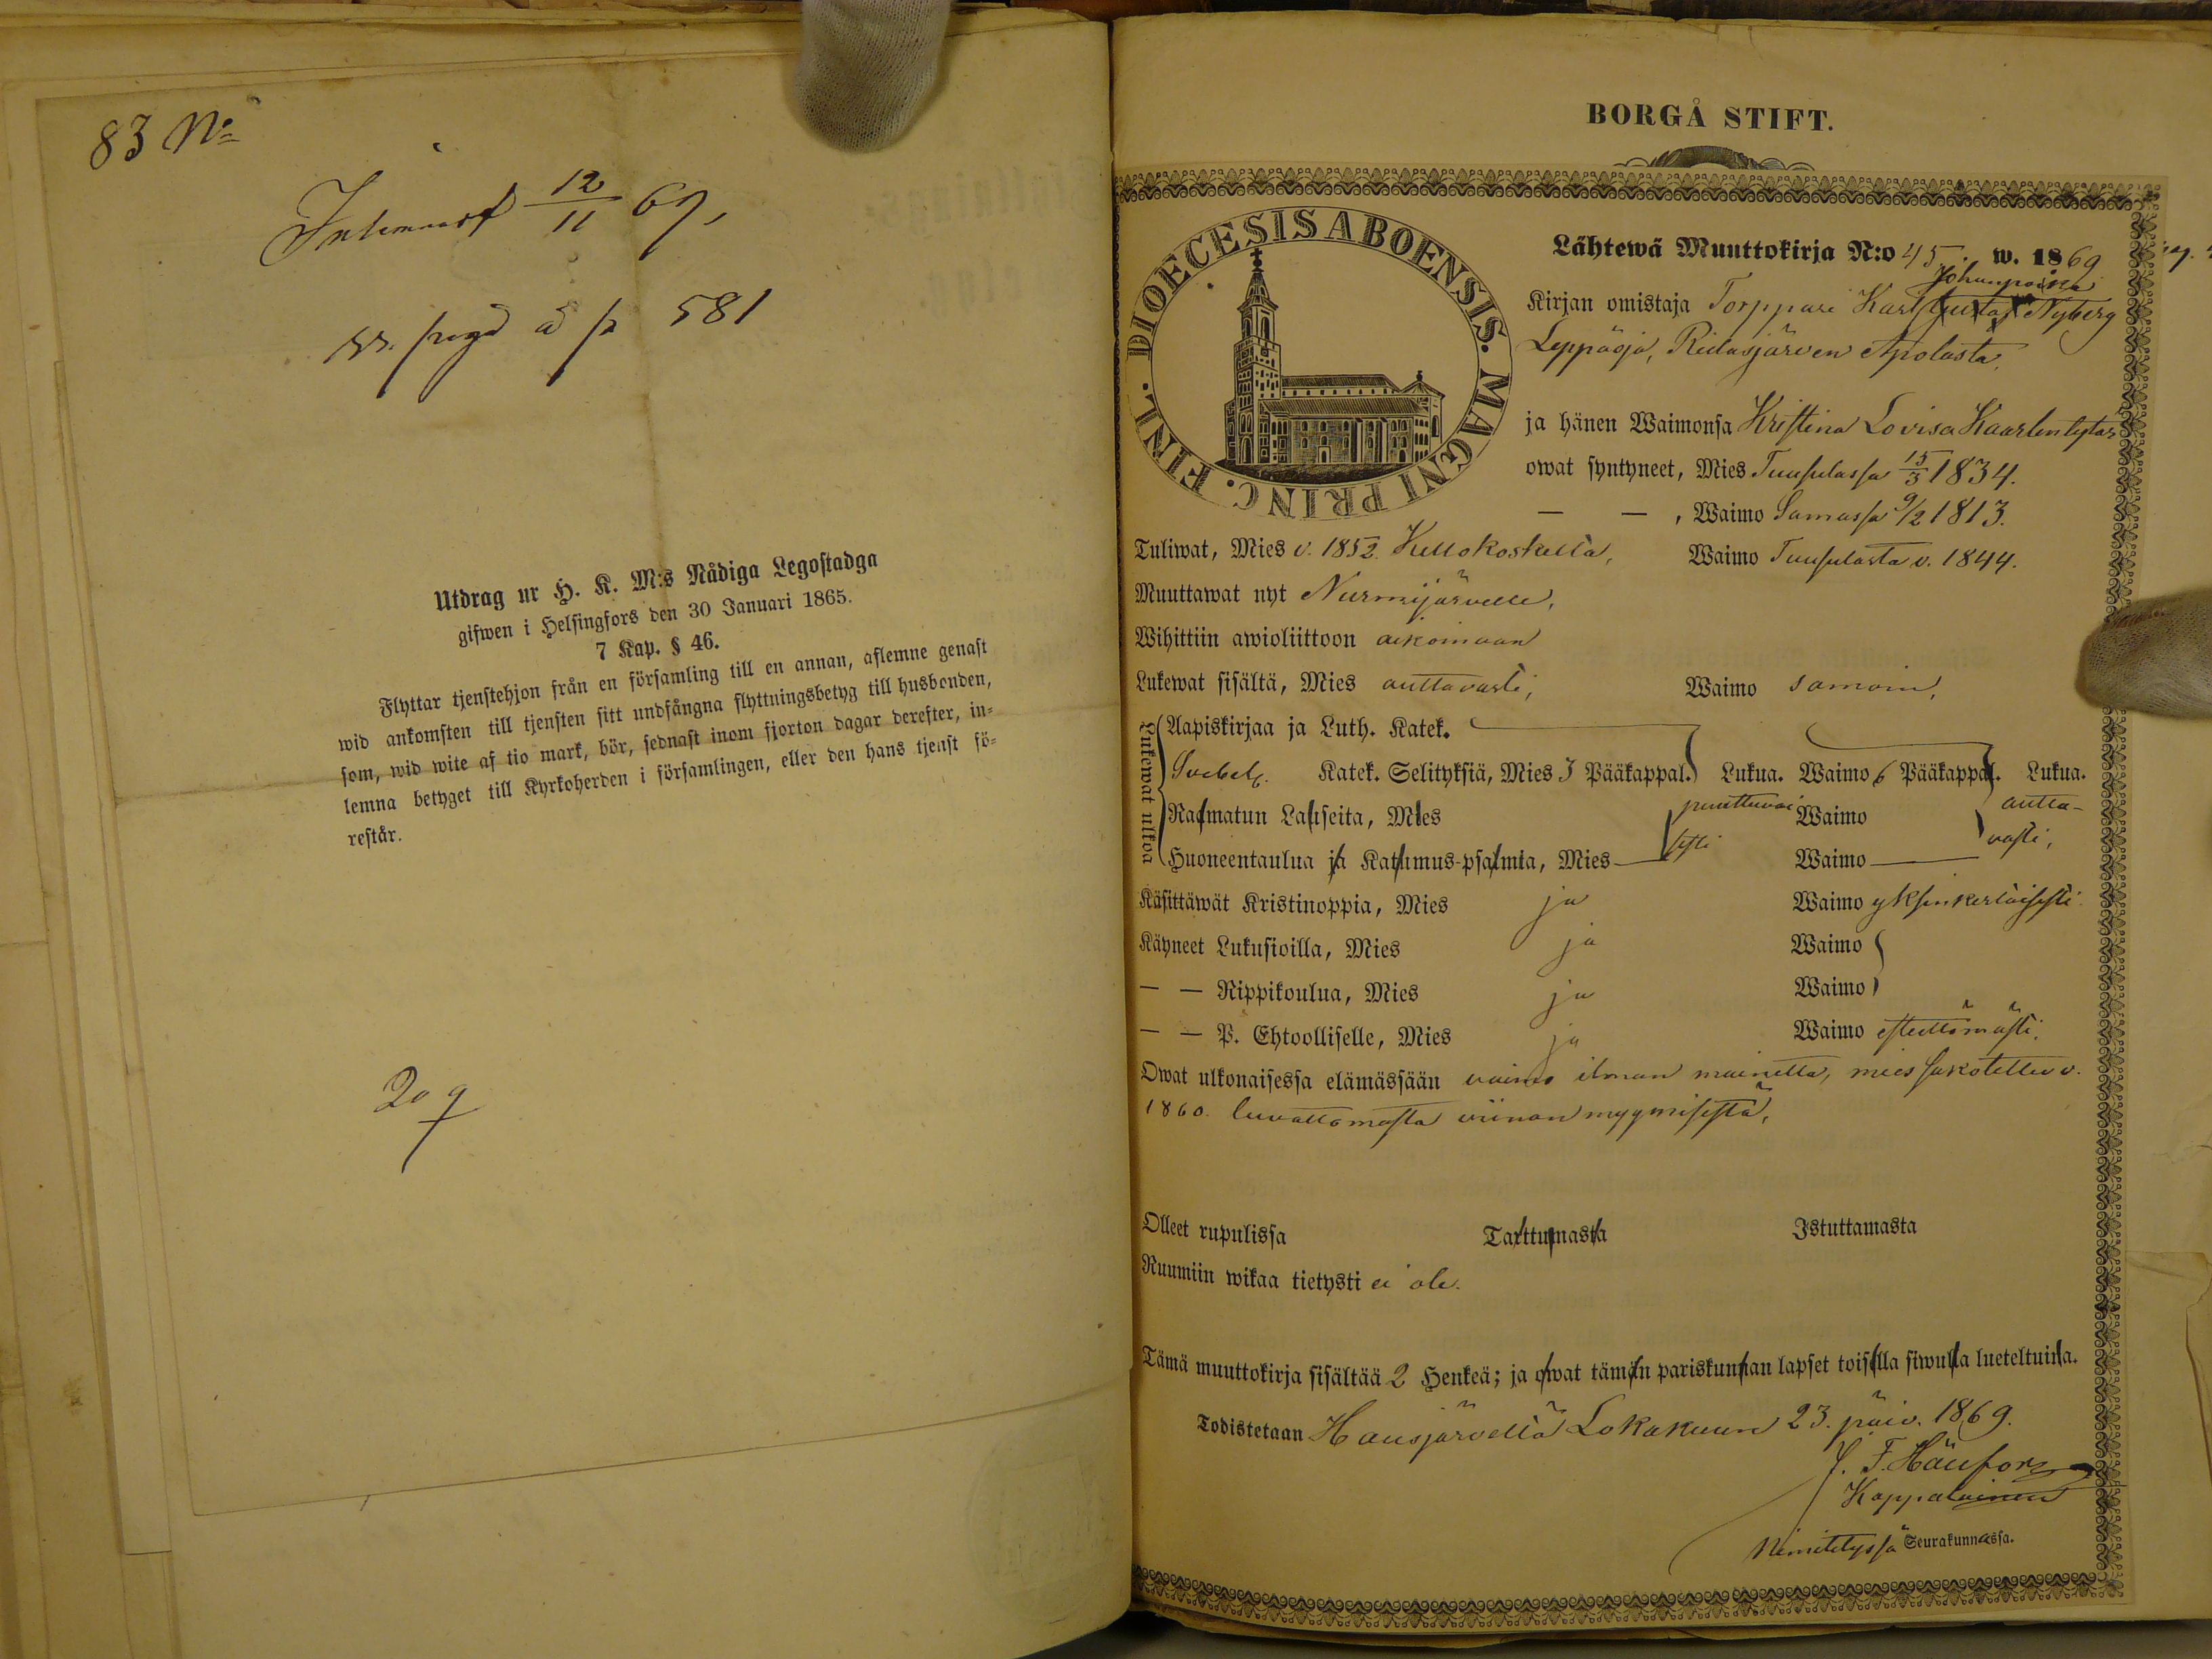 83 No
Inlemnadt 12/11 69,
å p 581
Utdrag ur H. K. M:s Nådiga Legostadga
gifwen i Helsingfors den 30 Januari 1865.
7 Kap. § 46.
Flyttar tjenstehjon från en församling till en annan, aflemne genast
wid ankomsten till tjensten sitt undfångna flyttningsbetyg till husbonden,
som, wid wite af tio mark, bör, sednast inom fjorton dagar derefter, in-
lemna betyget till Kyrkoherden i församlingen, eller den hans tjenst fö-
restår.
BORGÅ STIFT.
DIOECESIS ABOENSIS. MAGNI PRINC. FINL.
Lähtewä Muuttokirja N:o 45. w. 1869
Johanpoika
Kirjan omistaja Torppari Karl Gustaf Nyberg
Leppäoja, Ridasjärven
ja hänen Waimonsa Kristina Lovisa Kaarlentytär
owat syntyneet, Mies Tuusulassa 15/3 1834.
— — , Waimo Samassa 9/2 1813.
Tuliwat, Mies v. 1852. Kellokoskelta, Waimo Tuusulasta v. 1844.
Muuttawat nyt Nurmijärvelle,
Wihittiin awioliittoon aikoinaan
Lukewat sisältä, Mies auttavasti, Waimo samoin,
Lukewat ulkoa
Aapiskirjaa ja Luth. Katek.
Svebel. Katek. Selityksiä, Mies 3 Pääkappal. Lukua. Waimo 6 Pääkappal. Lukua.
Raamatun Lauseita, Mies puuttuvai Waimo autta-
Huoneentaulua ja Katumus-psalmia, Mies sesti Waimo vasti,
Käsittäwät Kristinoppia, Mies ja Waimo yksinkertaisesti
Käyneet Lukusioilla, Mies ja Waimo
— — Rippikoulua, Mies ja Waimo
— — P. Ehtoolliselle, Mies ja Waimo esteettömästi.
Owat ulkonaisessa elämässään vaimo ilman mainetta, mies sakotettu v.
1860. luvattomasta viinan myymisestä,
Olleet rupulissa Tarttumasta Istuttamasta
Ruumiin wikaa tietysti ei ole.
Tämä muuttokirja sisältää 2 Henkeä; ja owat tämän pariskunnan lapset toisella siwulla lueteltuina.
Todistetaan Hausjärvellä Lokakuun 23. päiv. 1869.
Kappalainen
Nimitetyssä Seurakunnassa.